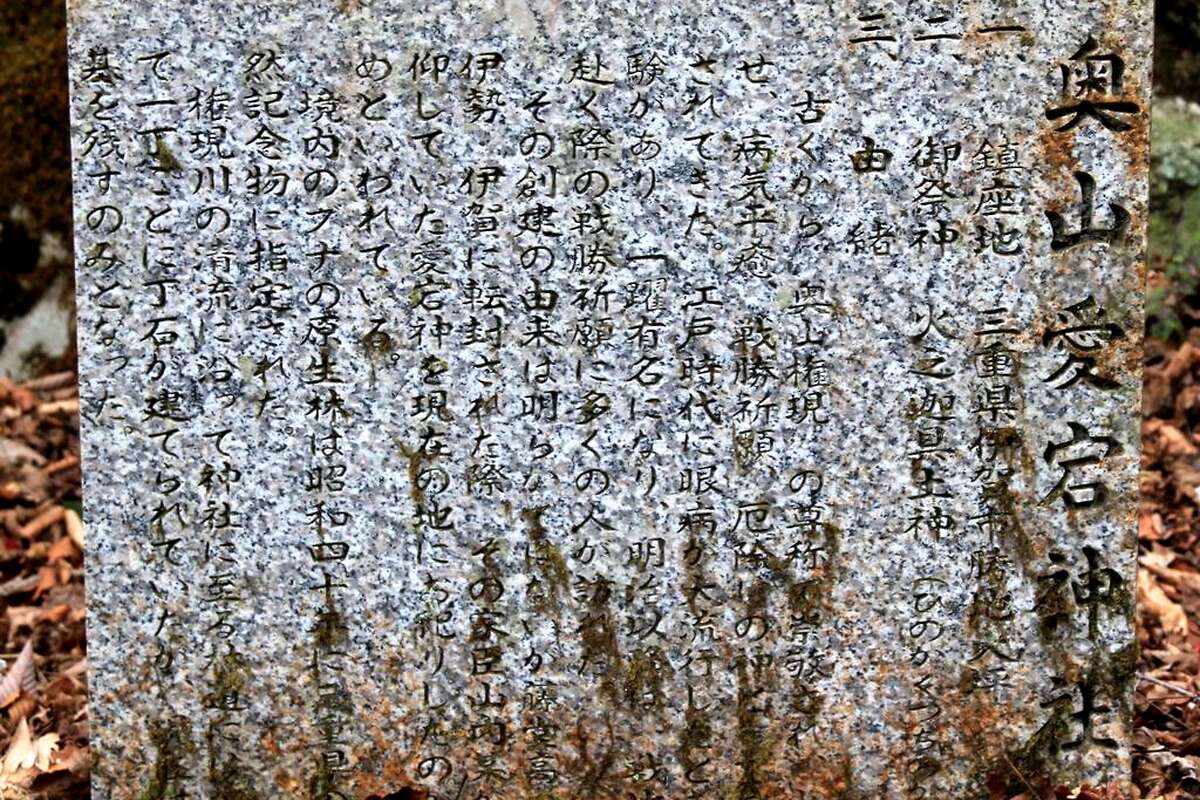 奥山愛宕神社
一、鎮座地 三重県伊賀市勝地
二、御祭神 火之迦具土神(ひのかぐつちの
三、由緒
古くから、奥山権現の尊称で崇敬され
せ、病気平癒、戦勝祈願、厄除けの神と
されてきた。江戸時代に眼病が大流行しこと
験があり、一躍有名になり、明治以降は
赴く際の戦勝祈願に多くの人が訪れた
その創建の由来は明らかではないが藤堂高
伊勢、伊賀に転封された際、その家臣山内某
仰していた愛宕神を現在の地にお祀りしたの
めといわれている。
境内のブナの原生林は昭和四十年に三重県
然記念物に指定された。
権現川の清流に沿って神社に至る
て一丁ごとに丁石が建てられていたが
基を残すのみとなった。